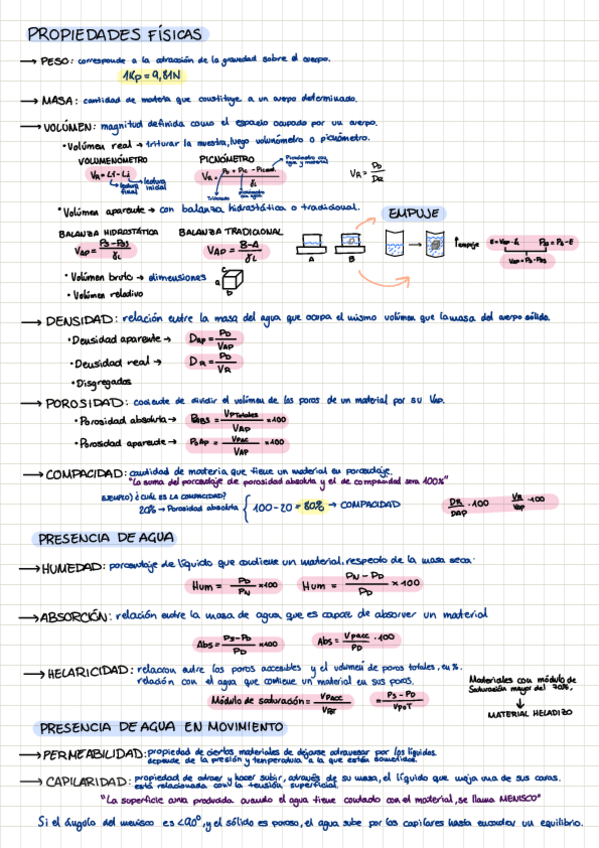 PROPIEDADES FÍSICAS
→ PESO: corresponde a la atracción de la gravedad sobre el cuerpo.
1Kp = 9,81N
→ MASA: cantidad de materia que constituye a un cuerpo determinado.
→ VOLÚMEN: magnitud definida como el espacio ocupado por un cuerpo.
• Volúmen real → triturar la muestra, luego volumómetro o picnómetro.
VOLUMENÓMETRO PICNÓMETRO
Picnómetro con agua y material
VR = Lf - Li
lectura final
lectura inicial
VR =
γL
VR = PD / DR
• Volúmen aparente → con balanza hidrostática o tradicional.
EMPUJE
BALANZA HIDROSTÁTICA BALANZA TRADICIONAL
VAP = / γL
VAP = B-A / γL
A B
↑ empuje
• Volúmen bruto → dimensiones
• Volúmen relativo
→ DENSIDAD: relación entre la masa del agua que ocupa el mismo volúmen que la masa del cuerpo sólido.
• Densidad aparente → DAP = PD / VAP
• Densidad real → DR = PD / VR
• Disgregados
→ POROSIDAD: cociente de dividir el volúmen de los poros de un material por su VAP.
• Porosidad absoluta → PABS = VPTotales / VAP ×100
• Porosidad aparente → PAP = VPAC / VAP ×100
→ COMPACIDAD: cantidad de materia que tiene un material en porcentaje.
"La suma del porcentaje de porosidad absoluta y el de compacidad sera 100%"
EJEMPLO) ¿CUÁL ES LA COMPACIDAD?
20% → Porosidad absoluta { 100-20 = 80% → COMPACIDAD
DR / DAP · 100
VR / VAP · 100
PRESENCIA DE AGUA
→ HUMEDAD: porcentaje de líquido que contiene un material, respecto de la masa seca.
Hum = PD / PN ×100 Hum = PN - PD / PD × 100
→ ABSORCIÓN: relación entre la masa de agua que es capaz de absorver un material
Abs = PS-PD / PD ×100 Abs = VPACC / PD · 100
→ HELARICIDAD: relacion entre los poros accesibles y el volúmen de poros totales, en %.
relación con el agua que contiene un material en sus poros.
Materiales con módulo de saturación mayor del 70%,
↓
MATERIAL HELADIZO
Módulo de saturación = VPACC / = PS - PD / VPOT
PRESENCIA DE AGUA EN MOVIMIENTO
→ PERMEABILIDAD: propiedad de ciertos materiales de dejarse atravesar por los líquidos.
depende de la presión y temperatura a la que están sometidos.
→ CAPILARIDAD: propiedad de atraer y hacer subir, através de su masa, el líquido que moja una de sus caras.
está relacionada con la tensión superficial.
"La superficie curva producida cuando el agua tiene contacto con el material, se llama MENISCO"
Si el ángulo del menisco es <90°, y el sólido es poroso, el agua sube por los capilares hasta encontrar un equilibrio.